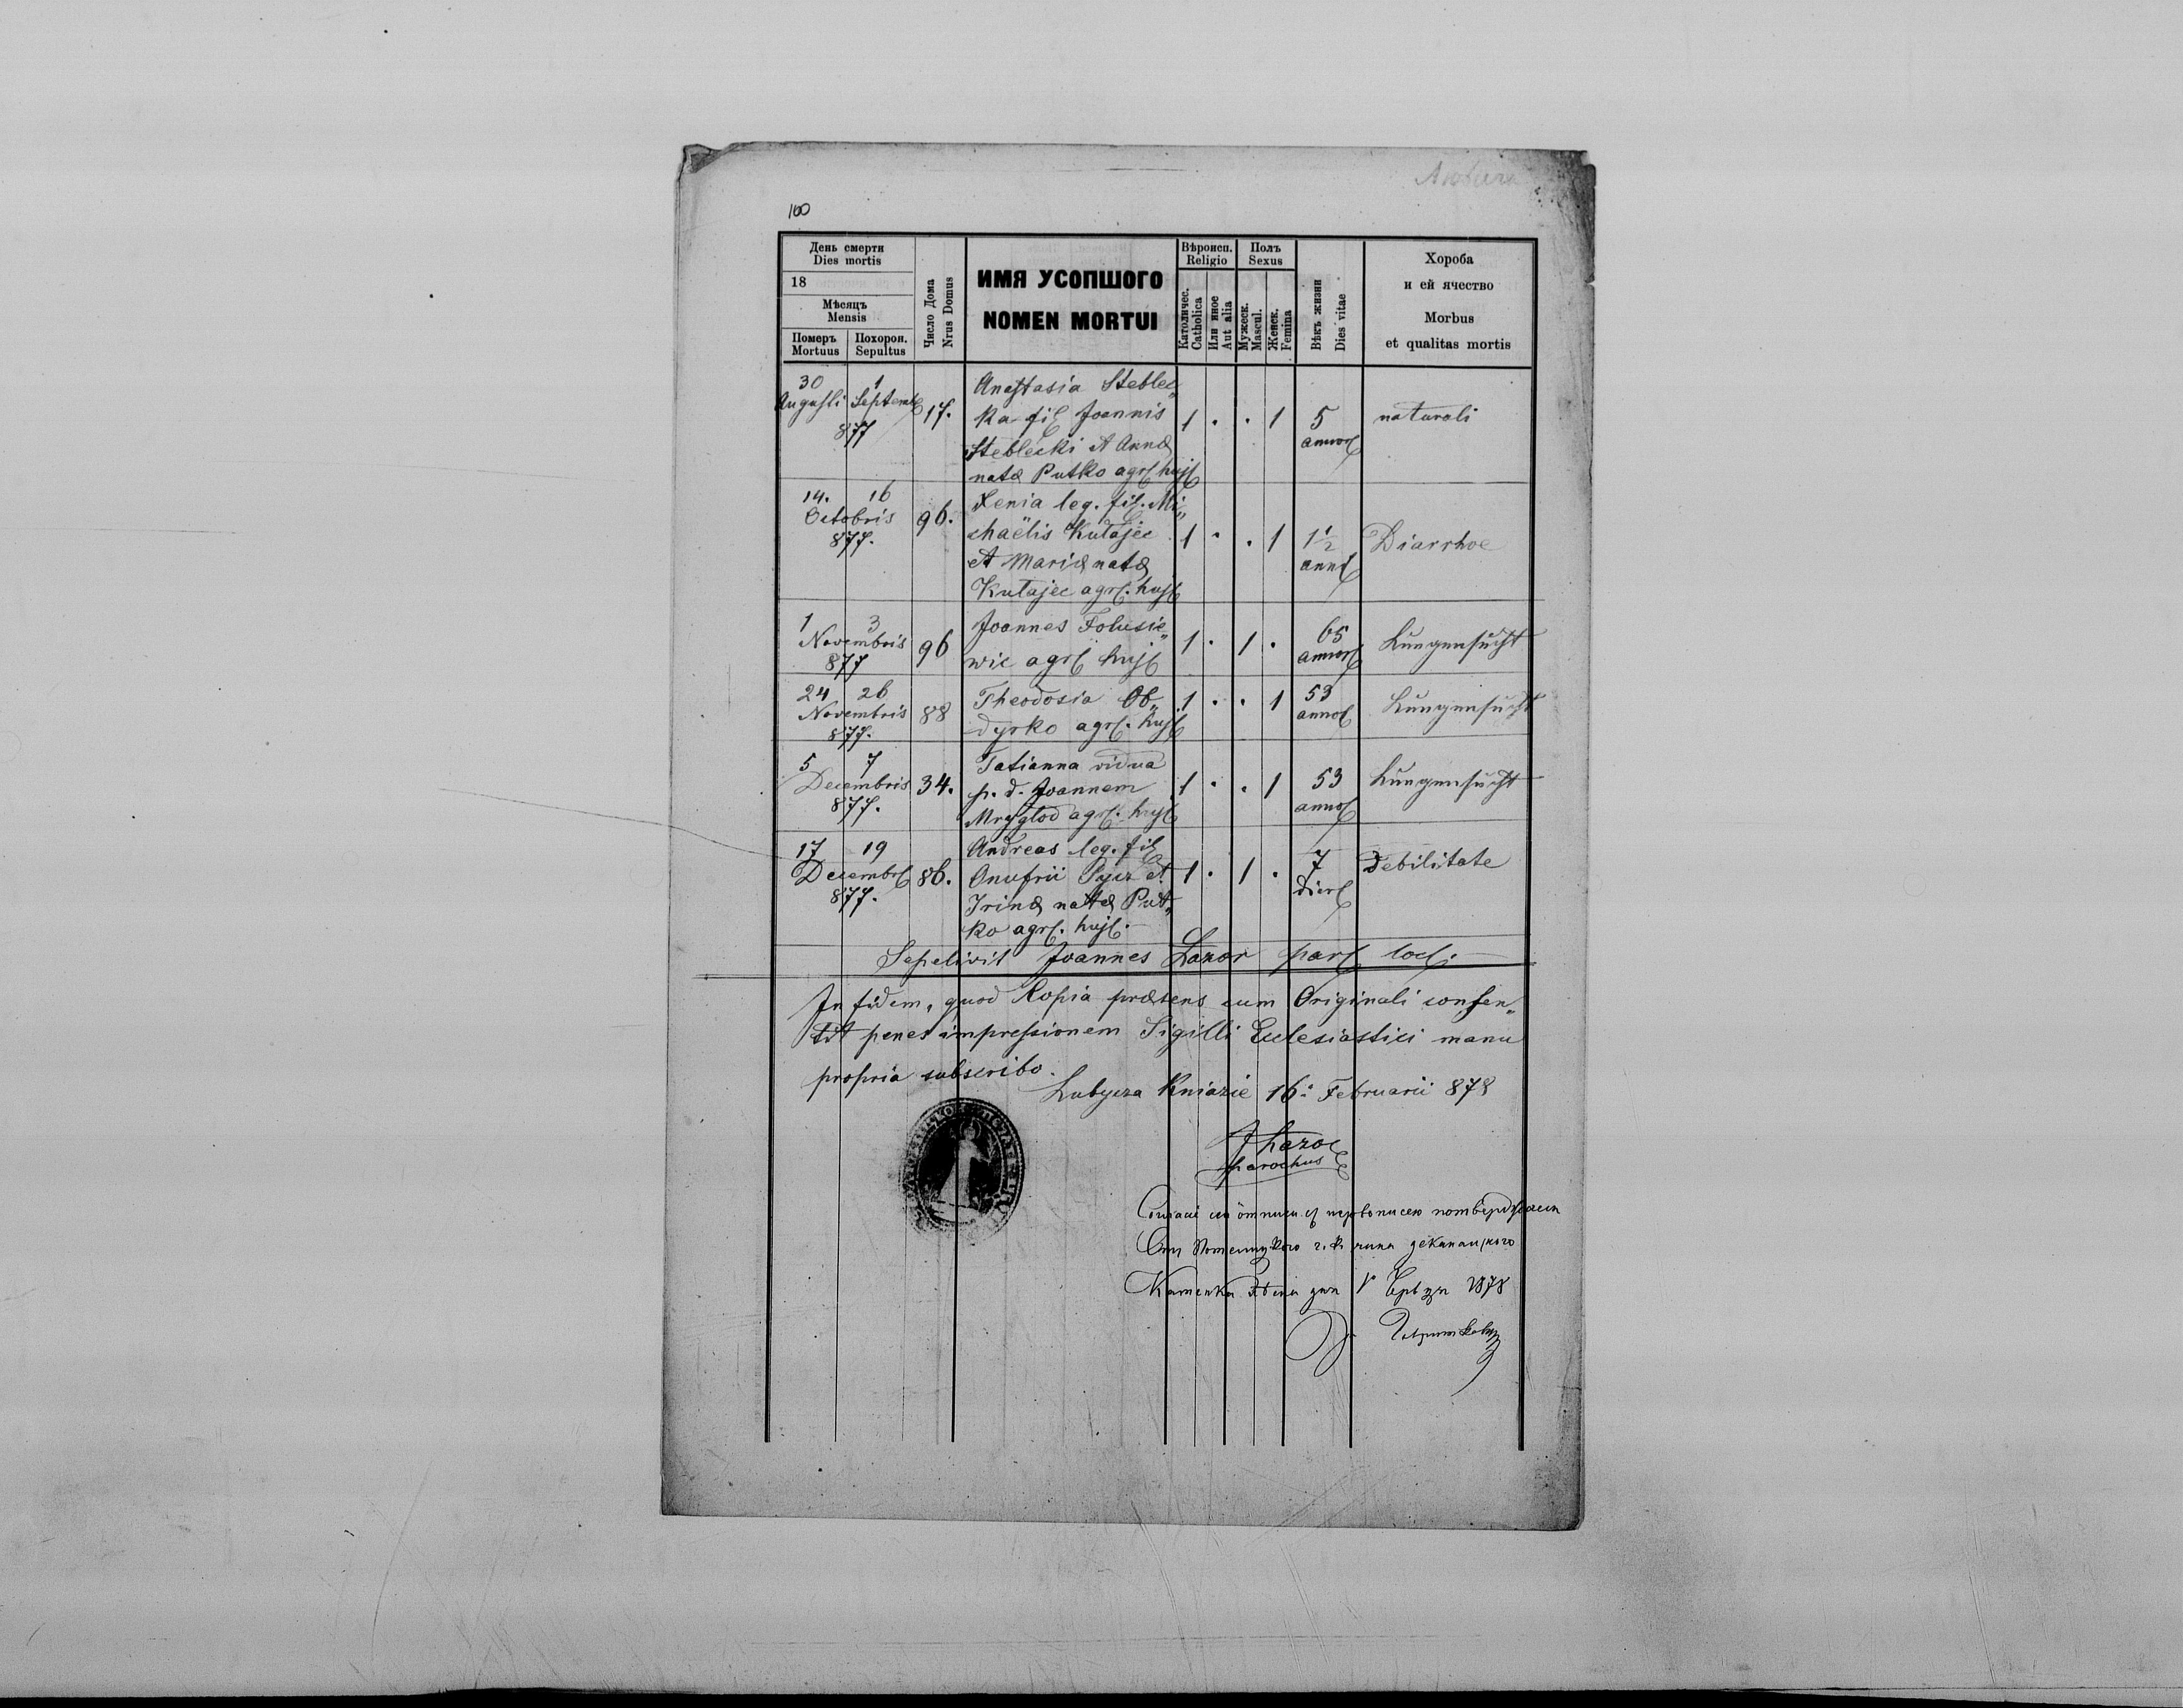 Любича
100
День смерти
Dies mortis
18
Мѣсяцъ
Mensis
Померъ
Mortuus
Похорон.
Sepultus
Число Дома
Nrus Domus
ИМЯ УСОПШОГО
NOMEN MORTUI
Вѣроисп.
Religio
Католичес.
Catholica
Или иное
Aut alia
Полъ
Sexus
Мужеск.
Mascul.
Женск.
Femina
Вѣкъ жизни
Dies vitae
Хороба
и ей ячество
Morbus
et qualitas mortis
30 1 Anastasia Steblec„
Augusti Septemb 17. ka fil Joannis 1 . . 1 5 naturali
877 Steblecki et Annæ annor
natæ Putko agr huj
14. 16 Xenia leg. fil. Mi„
Octobris 96. chaëlis Kutajec 1 . . 1 1 1/2 Diarrhoe
877. et Mariæ natæ anni
Kutajec agr. huj
1 3 Joannes Folusie„ 65
Novembris 96 wic agr huj 1 . 1 . annor Lungensucht
877
24 26 Theodosia Ob„ 1 . . 1 53 Lungensucht
Novembris 88 dyrko agr. huj anno
877.
5 7 Tatianna vidua
Decembris 34. p. d. Joannem 1 . . 1 53 Lungensucht
877. Mryglod agr. huj anno
17 19 Andreas leg. fil
Decembr 86. Onufrii Sycz et 1 . 1 . 7 Debilitate
877. Irinæ natæ Put„ dier
ko agr. huj.
Sepelivit Joannes Lazor par loc.
In fidem, quod Kopia præsens cum Originali consen„
tit penes impressionem Sigilli Ecclesiastici manu
propria subscribo.
Lubycza Kniazie 16. Februarii 878
J Lazor
parochus
Каменка дня 1878